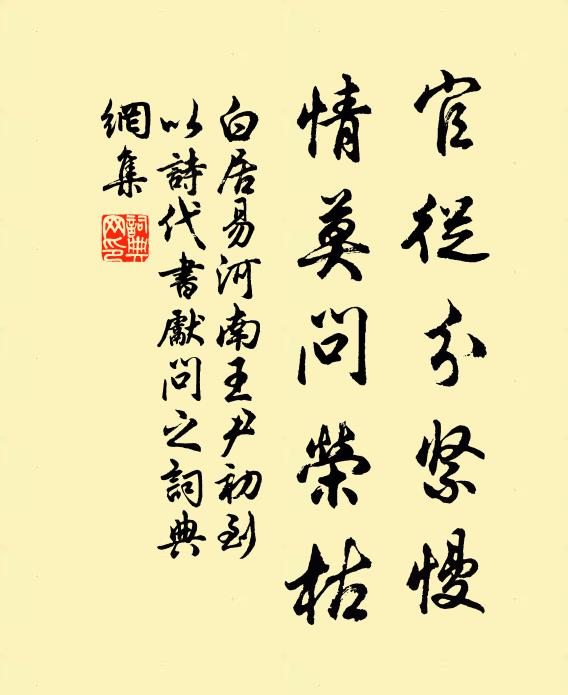 官從分緊慢
情莫問榮枯
白居易河南王尹初到
以詩代書獻問之詞典
網集
詞典網印